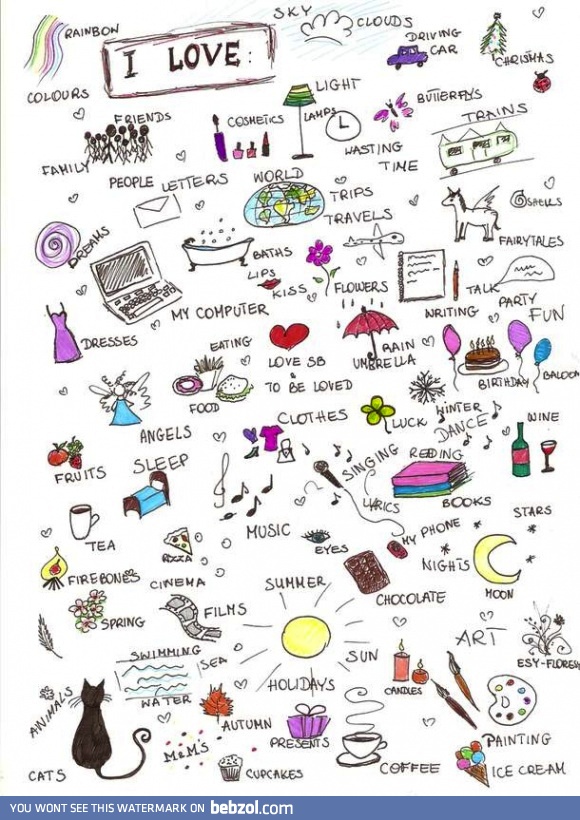 SKY
CLOUDS
RAINBOW
I LOVE:
DRIVING
CAR
CHRISMAS
COLOURS
LIGHT
LAMPS
BUTTERFLYS
FRIENDS
COSMETICS
TRAINS
WASTING
TIME
FAMILY
PEOPLE
LETTERS
WORLD
TRIPS
TRAVELS
SHELLS
FAIRYTALES
DREAMS
BATHS
LIPS
KISS
FLOWERS
TALK
PARTY
FUN
WRITING
MY COMPUTER
DRESSES
EATING
FOOD
LOVE SB
TO BE LOVED
RAIN
UMBRELLA
BIRTHDAY
BALOON
ANGELS
CLOTHES
LUCK
WINTER
DANCE
WINE
FRUITS
SLEEP
SINGING
READING
LYRICS
BOOKS
STARS
TEA
PIZZA
MUSIC
EYES
MY PHONE
NIGHTS
MOON
FIREBONES
CINEMA
SUMMER
CHOCOLATE
SPRING
FILMS
SUN
ART
ESY-FLORESY
SWIMMING
SEA
WATER
HOLIDAYS
CANDLES
ANIMALS
AUTUMN
PRESENTS
PAINTING
M&M'S
CATS
CUPCAKES
COFFEE
ICE CREAM
YOU WONT SEE THIS WATERMARK ON bebzol.com